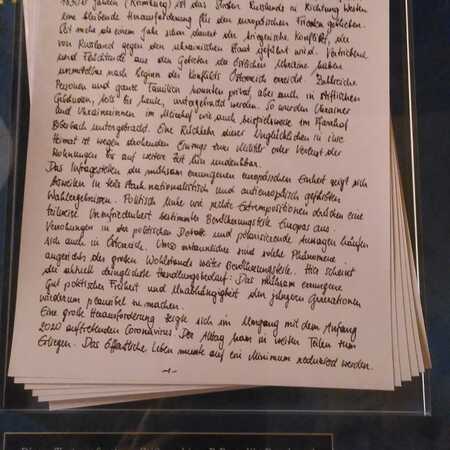 eine bleibende Herausforderung für den europäischen Frieden geblieben.
Seit mehr als einem Jahr schon dauert der kriegerische Konflikt, der
von Russland gegen den ukrainischen Staat geführt wird. Vertriebene
und Flüchtende aus den Gebieten der östlichen Ukraine haben
unmittelbar nach Beginn des Konflikts Österreich erreicht. Zahlreiche
Personen und ganze Familien konnten privat, aber auch in stiftlichen
Gebäuden, teils bis heute, untergebracht werden. So wurden Ukrainer
und Ukrainerinnen im Meierhof wie auch beispielsweise im Pfarrhof
Biberbach untergebracht. Eine Rückkehr dieser Unglücklichen in ihre
Heimat ist wegen drohenden Einzugs zum Militär oder Verlust der
Wohnungen bis auf weitere Zeit hin undenkbar.
Das Infragestellen der mühsam errungenen europäischen Einheit zeigt sich
bisweilen in teils stark nationalistisch und antieuropäisch gefärbten
Wahlergebnissen. Politisch linke und rechte Extrempositionen drücken eine
teilweise Unzufriedenheit bestimmter Bevölkerungsteile Europas aus.
Verrohungen in der politischen Debatte und polarisierende Aussagen häufen
sich auch in Österreich. Umso erstaunlicher sind solche Phänomene
angesichts des großen Wohlstands weiter Bevölkerungsteile. Hier scheint
der aktuell dringlichste Handlungsbedarf: Das mühsam errungene
Gut politischer Freiheit und Unabhängigkeit den jüngeren Generationen
wiederum plausibel zu machen.
Eine große Herausforderung zeigte sich im Umgang mit dem Anfang
2020 auftretenden Coronavirus. Der Alltag kam in weiten Teilen zum
Erliegen. Das öffentliche Leben musste auf ein Minimum reduziert werden.
-1-